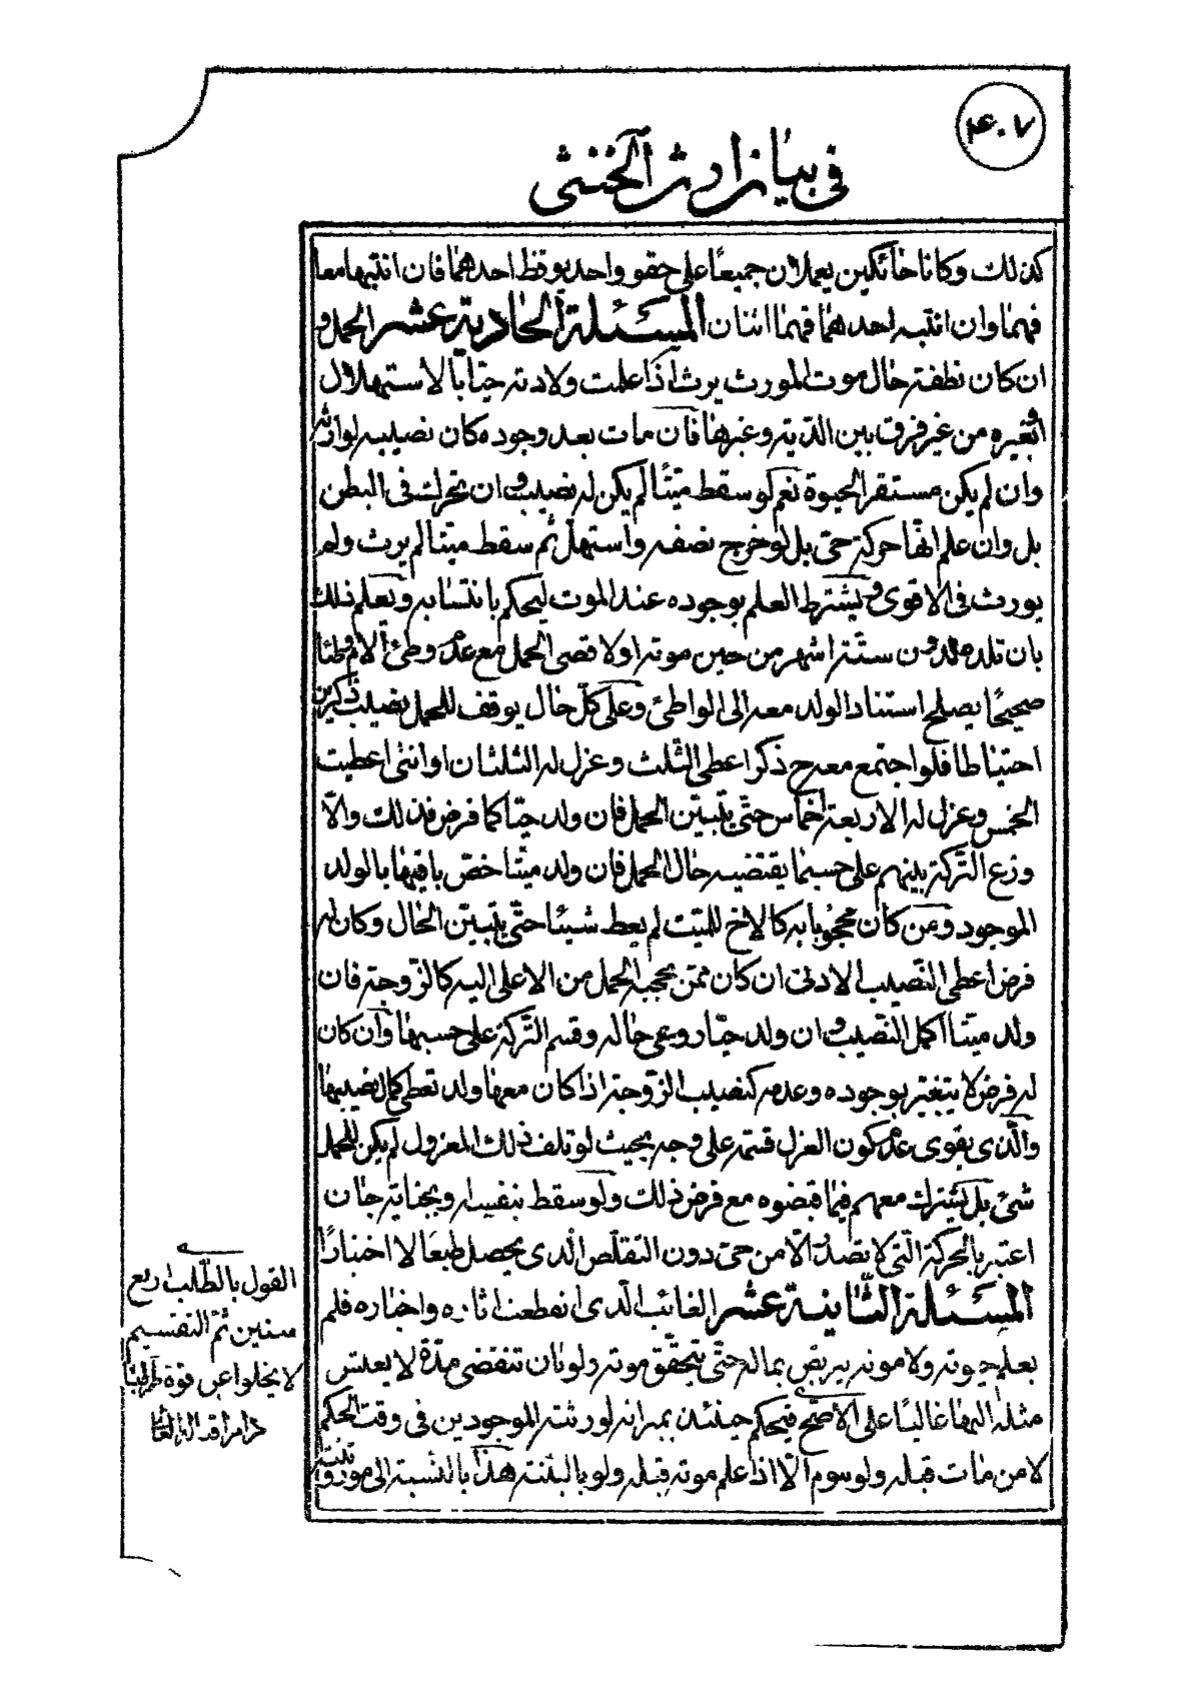 ۴۰۷
في بيان ارث الخنثى
كذلك وكانا حائكين يعملان جميعًا على حقو واحد يوقظ احدهما فان انتبها معا
فهما وان انتبه احدهما فهما اثنان المسئلة الحادية عشر الحمل و
ان كان نطفة حال موت المورث يرث اذا علمت ولادته حيّا بالاستهلال
او بغيره من غير فرق بين الدّية وغيرها فان مات بعد وجوده كان نصيبه لوارثه
وان لم يكن مستقر الحيوة نعم لو سقط ميّتًا لم يكن له نصيب وان تحرك فى البطن
بل وان علم انّها حركة حىّ بل لو خرج نصفه واستهلّ ثم سقط ميتا لم يرث ولم
يورث فى الاقوى ويشترط العلم بوجوده عند الموت ليحكم بانتسابه ويعلم ذلك
بان تلده لدون ستّة اشهر من حين موته او لاقصى الحمل مع عدم وطئ الام وطئا
صحيحًا يصلح استناد الولد معه الى الواطئ وعلى كلّ حال يوقف للحمل نصيب ذكرين
احتياطا فلو اجتمع معه ح ذكر اعطى الثّلث وعزل له الثلثان او انثى اعطيت
الخمس وعزل له الاربعة اخماس حتّى يتبيّن الحمل فان ولد حيّا كما فرض فذلك والّا
وزع التّركة بينهم على حسبما يقتضيه حال الحمل فان ولد ميّتا خصّ باقيها بالولد
الموجود ومن كان محجوبا به كالاخ للميّت لم يعط شيئا حتّى يتبيّن الحال وكان له
فرض اعطى النّصيب الادنى ان كان ممّن يحجبه الحمل من الاعلى اليه كالزّوجة فان
ولد ميّتا اكمل النّصيب وان ولد حيّا روعى حاله وقسم التّركة على حسبها وان كان
له فرض لا يتغيّر بوجوده وعدمه كنصيب الزّوجة اذا كان معها ولد تعطى كمال نصيبها
والّذى يقوى عدم كون العزل قسمة على وجه بحيث لو تلف ذلك المعزول لم يكن للحمل
شئ بل يشترك معهم فيما قبضوه مع فرض ذلك ولو سقط بنفسه او بجناية جان
اعتبر بالحركة الّتى لا تصدر الّا من حىّ دون التقلّص الّذى يحصل طبعًا لا اختيارًا
المسئلة الثّانية عشر الغائب الّذى انقطعت اثاره واخباره فلم
يعلم حيوته ولا موته يتربّص بماله حتّى يتحقّق موته ولو بان تنقضى مدّة لا يعيش
مثله اليها غالبًا على الاصحّ فيحكم حينئذ بميراثه لورثته الموجودين فى وقت الحكم
لا من مات قبله ولو بيوم الّا اذا علم موته قبله ولو بالبيّنة هذا بالنّسبة الى موروثيّته
القول بالطّلب اربع
سنين ثمّ التقسيم
لا يخلوا عن قوة